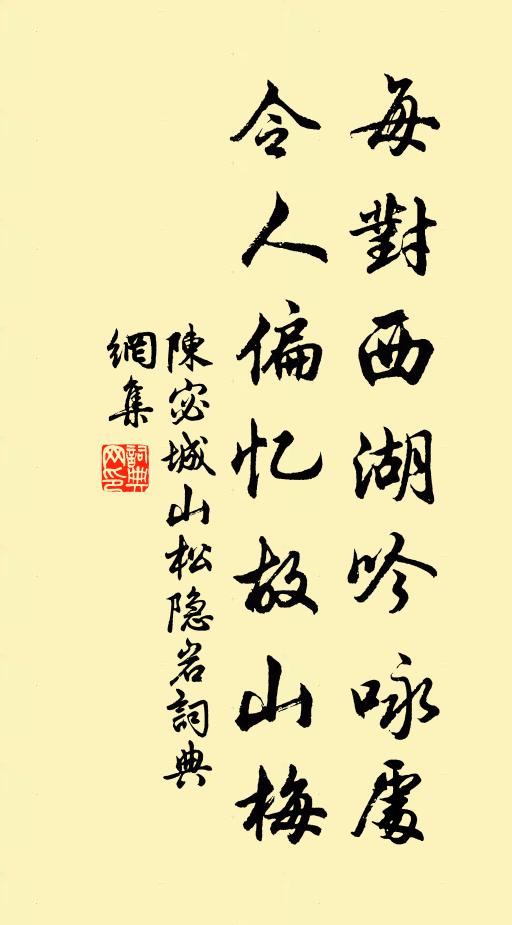 每對西湖吟咏處
令人偏忆故山梅
陳宓城山松隐岩詞典
網集
詞典
网印